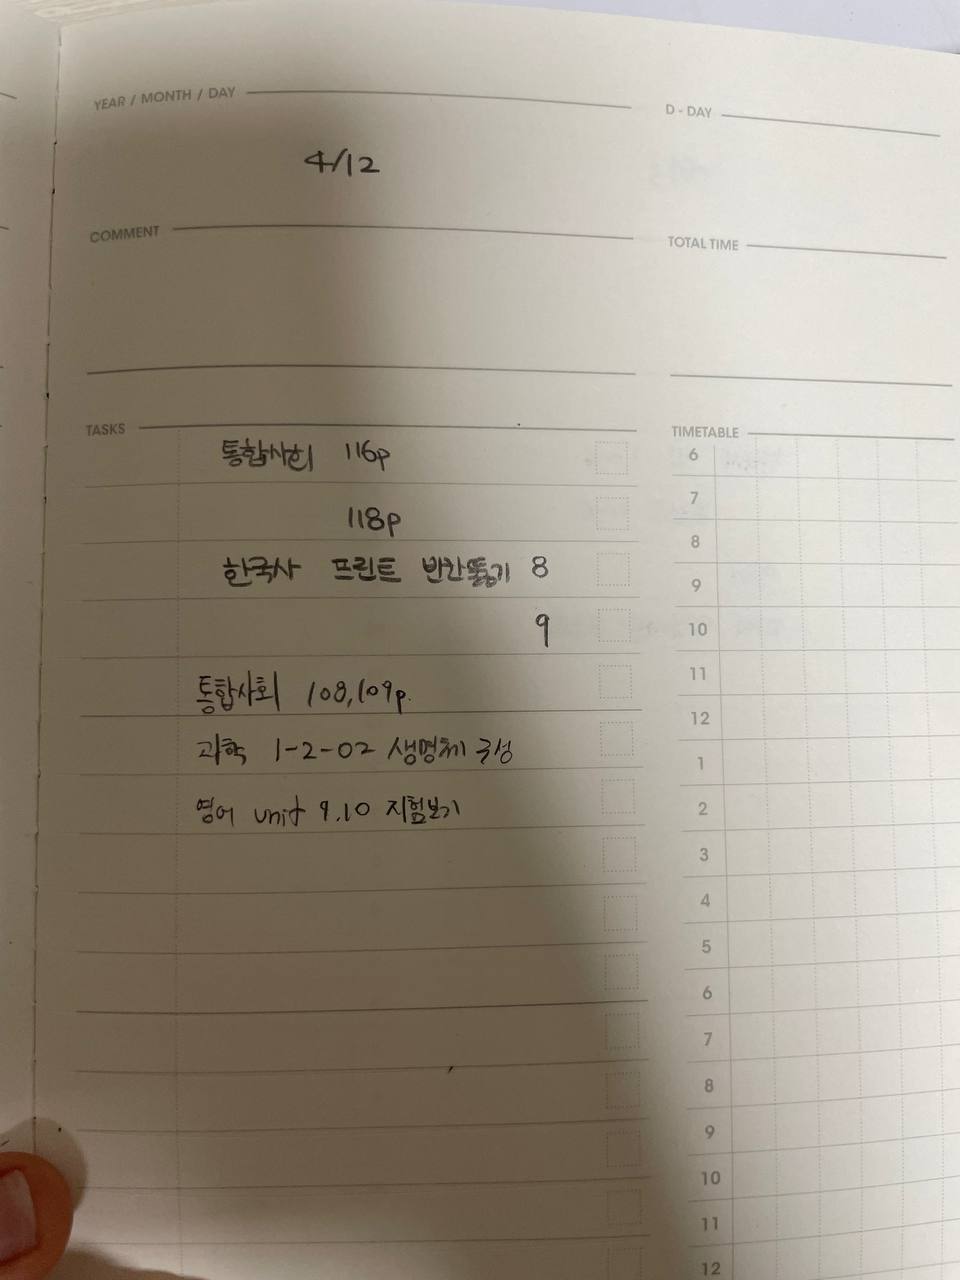 YEAR / MONTH / DAY
D - DAY
4/12
COMMENT
TOTAL TIME
TASKS
통합사회 116p
118p
한국사 프린트 빈칸뚫기 8
9
통합사회 108,109p.
과학 1-2-02 생명체 구성
영어 unit 9.10 시험보기
TIMETABLE
6
7
8
9
10
11
12
1
2
3
4
5
6
7
8
9
10
11
12